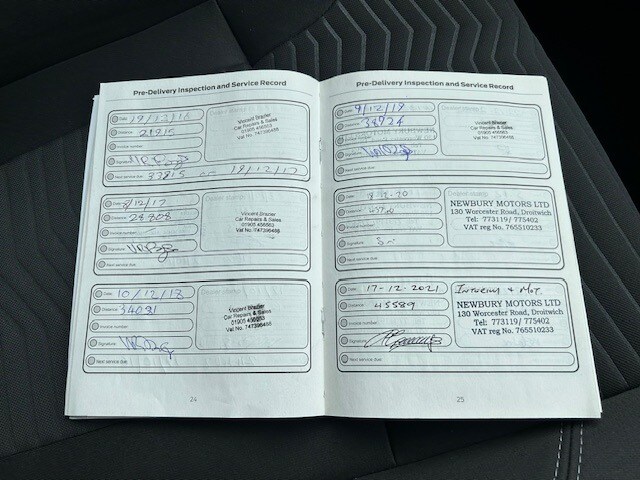 Pre-Delivery Inspection and Service Record
Date 19/12/16
Distance 21915
Invoice number
Signature
Next service due 33915 or 19/12/17
Vincent Brazier
Car Repairs & Sales
01905 456563
Vat No. 747396488
Date 8/12/17
Distance 28808
Invoice number
Signature
Next service due
Vincent Brazier
Car Repairs & Sales
01905 456563
Vat No. 747396488
Date 10/12/18
Distance 34081
Invoice number
Signature
Next service due
Vincent Brazier
Car Repairs & Sales
01905 456563
Vat No. 747396488
24
Pre-Delivery Inspection and Service Record
Date 9/12/19
Distance 38924
Signature
Next service due
Vincent Brazier
Car Repairs & Sales
01905 456563
Vat No. 747396488
Date
Distance
Invoice number
Signature
Next service due
NEWBURY MOTORS LTD
130 Worcester Road, Droitwich
Tel: 773119/ 775402
VAT reg No. 765510233
Date 17-12-2021
Distance 45589
Invoice number
Signature
Next service due
Interim & MOT.
NEWBURY MOTORS LTD
130 Worcester Road, Droitwich
Tel: 773119/ 775402
VAT reg No. 765510233
25